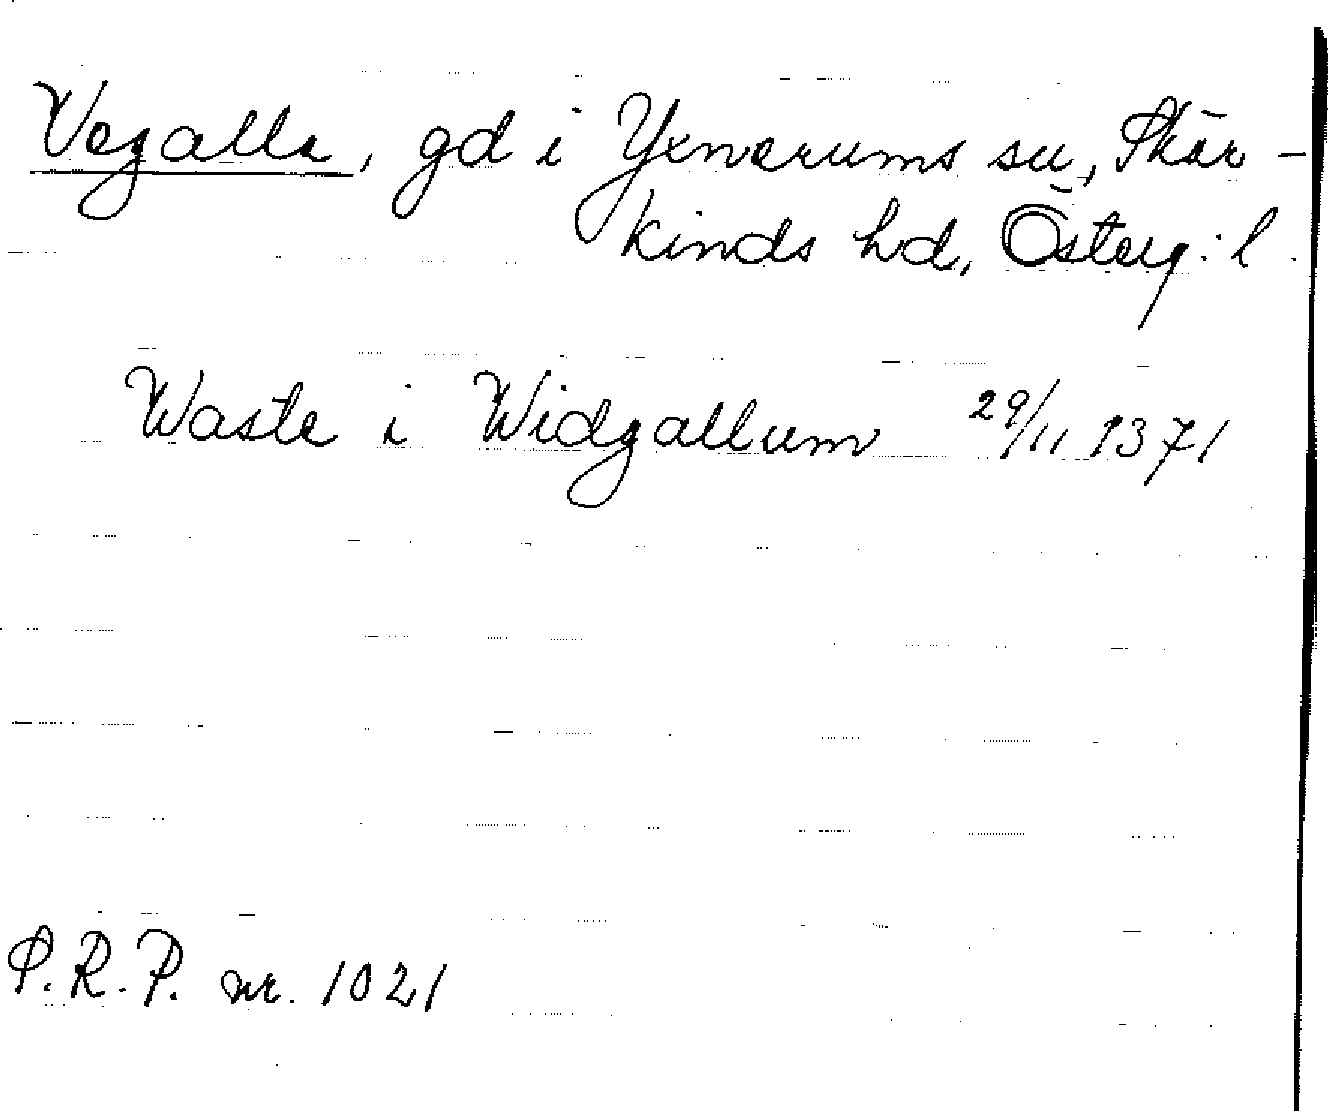 Vegalla, gd i Yxnerums sn, Skär-
kinds hd, Österg:l.
Waste i Widgallum 29/11 1371
S.R.P. nr. 1021